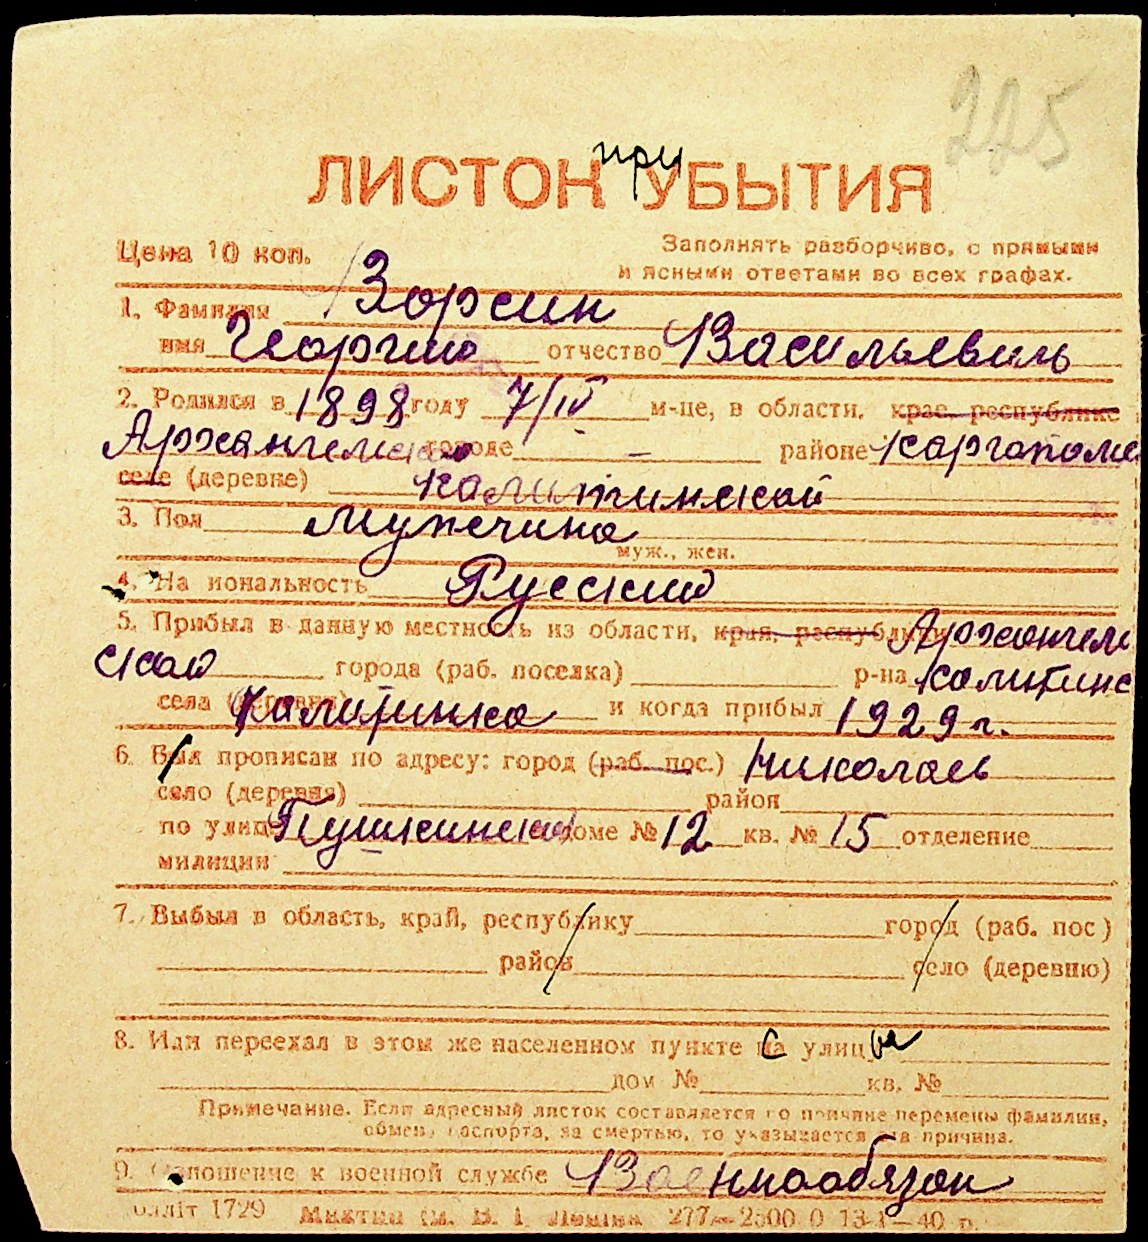 225
при
ЛИСТОК УБЫТИЯ
Цена 10 коп. Заполнять разборчиво, с прямыми
и ясными ответами во всех графах.
1. Фамилия Зорсин
имя Георгий отчество Васильевич
2. Родился в 1898 году 7/IV м-це, в области, крае, республике
Архангельской городе — районе Каргополь
селе (деревне) Калитинской
3. Пол Мужчина
муж., жен.
4. На иональность Русский
5. Прибыл в данную местность из области, края, республики Архангель
ской города (раб. поселка) р-на Калитинс
села (деревни) Калитинка и когда прибыл 1929 г.
6. Был прописан по адресу: город (раб. пос.) Николаев
село (деревня) район
по улице Пушкинской доме № 12 кв. № 15 отделение
милиции
7. Выбыл в область, край, республику город (раб. пос)
район село (деревню)
8. Или переехал в этом же населенном пункте с улицы
дом № кв. №
Примечание. Если адресный листок составляется по причине перемены фамилии,
обмена паспорта, за смертью, то указывается эта причина.
9. Отношение к военной службе Военнообязан
облліт 1729 В. І. Леніна 277—2500 0 13-I—40 р.